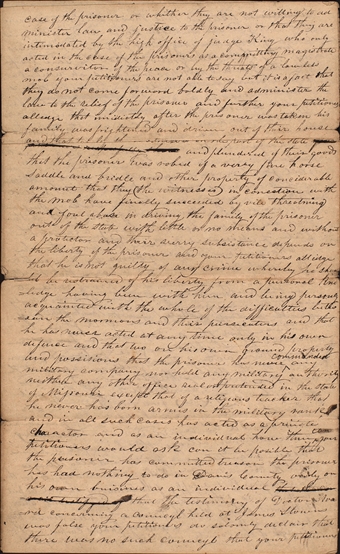 case of the prisoner or whether they are not willing to ad
minister law and justice to the prisoner or that they are
intimidated by the high office of Judge King who only
acted in the case of the prisoners as a committing magistrate
a conservitor of the peace or by the threats of a lawless
mob your petitioners are not able to say but it is a fact that
they do not come forward boldly and administer the
law to the relief of the prisoner and further your petitioners
alledge that imidiatly after the prisoner was taken his
family was frightened and driven out of their house
and that too by the
and plundered of their goods
that the prisoner was robed of a very fine horse
Saddle and bridle and other property of considerable
amount that they (the witnesses) in conection with
the mob have finally succeeded by vile threatning
and foul abuse in driving the family of the prisoner
out of the state with little or no means and without
a protector and their very subsistance depends on
the liberty of the prisoner and your petitioners alledge
that he is not guilty of any crime whereby he should
be restrained of his liberty from a personal know
ledge having been with him and being personally
acquainted with the whole of the difficulties between
the mormons and their persecutors and that
he has never acted at any time only in his own
defence and that too on his own ground property
and possesions that the prisoner has never commanded
any military company nor held any military authority
neither any other office real or pretended in the state
of Missouri except that of a religious teacher that
he never has born arms in the military rank
and in all such cases has acted as a private
character and as an individual how then your
petitioners would ask can it be posible that
the prisoner has committed treason the prisoner
has had nothing to do in Davis County only on
his own buisiness as an individual
that the testimony of Doctor Ava
concerning a council held at James Sloans
was false your petitioners do solomly declare that
there was no such council that your petitioners